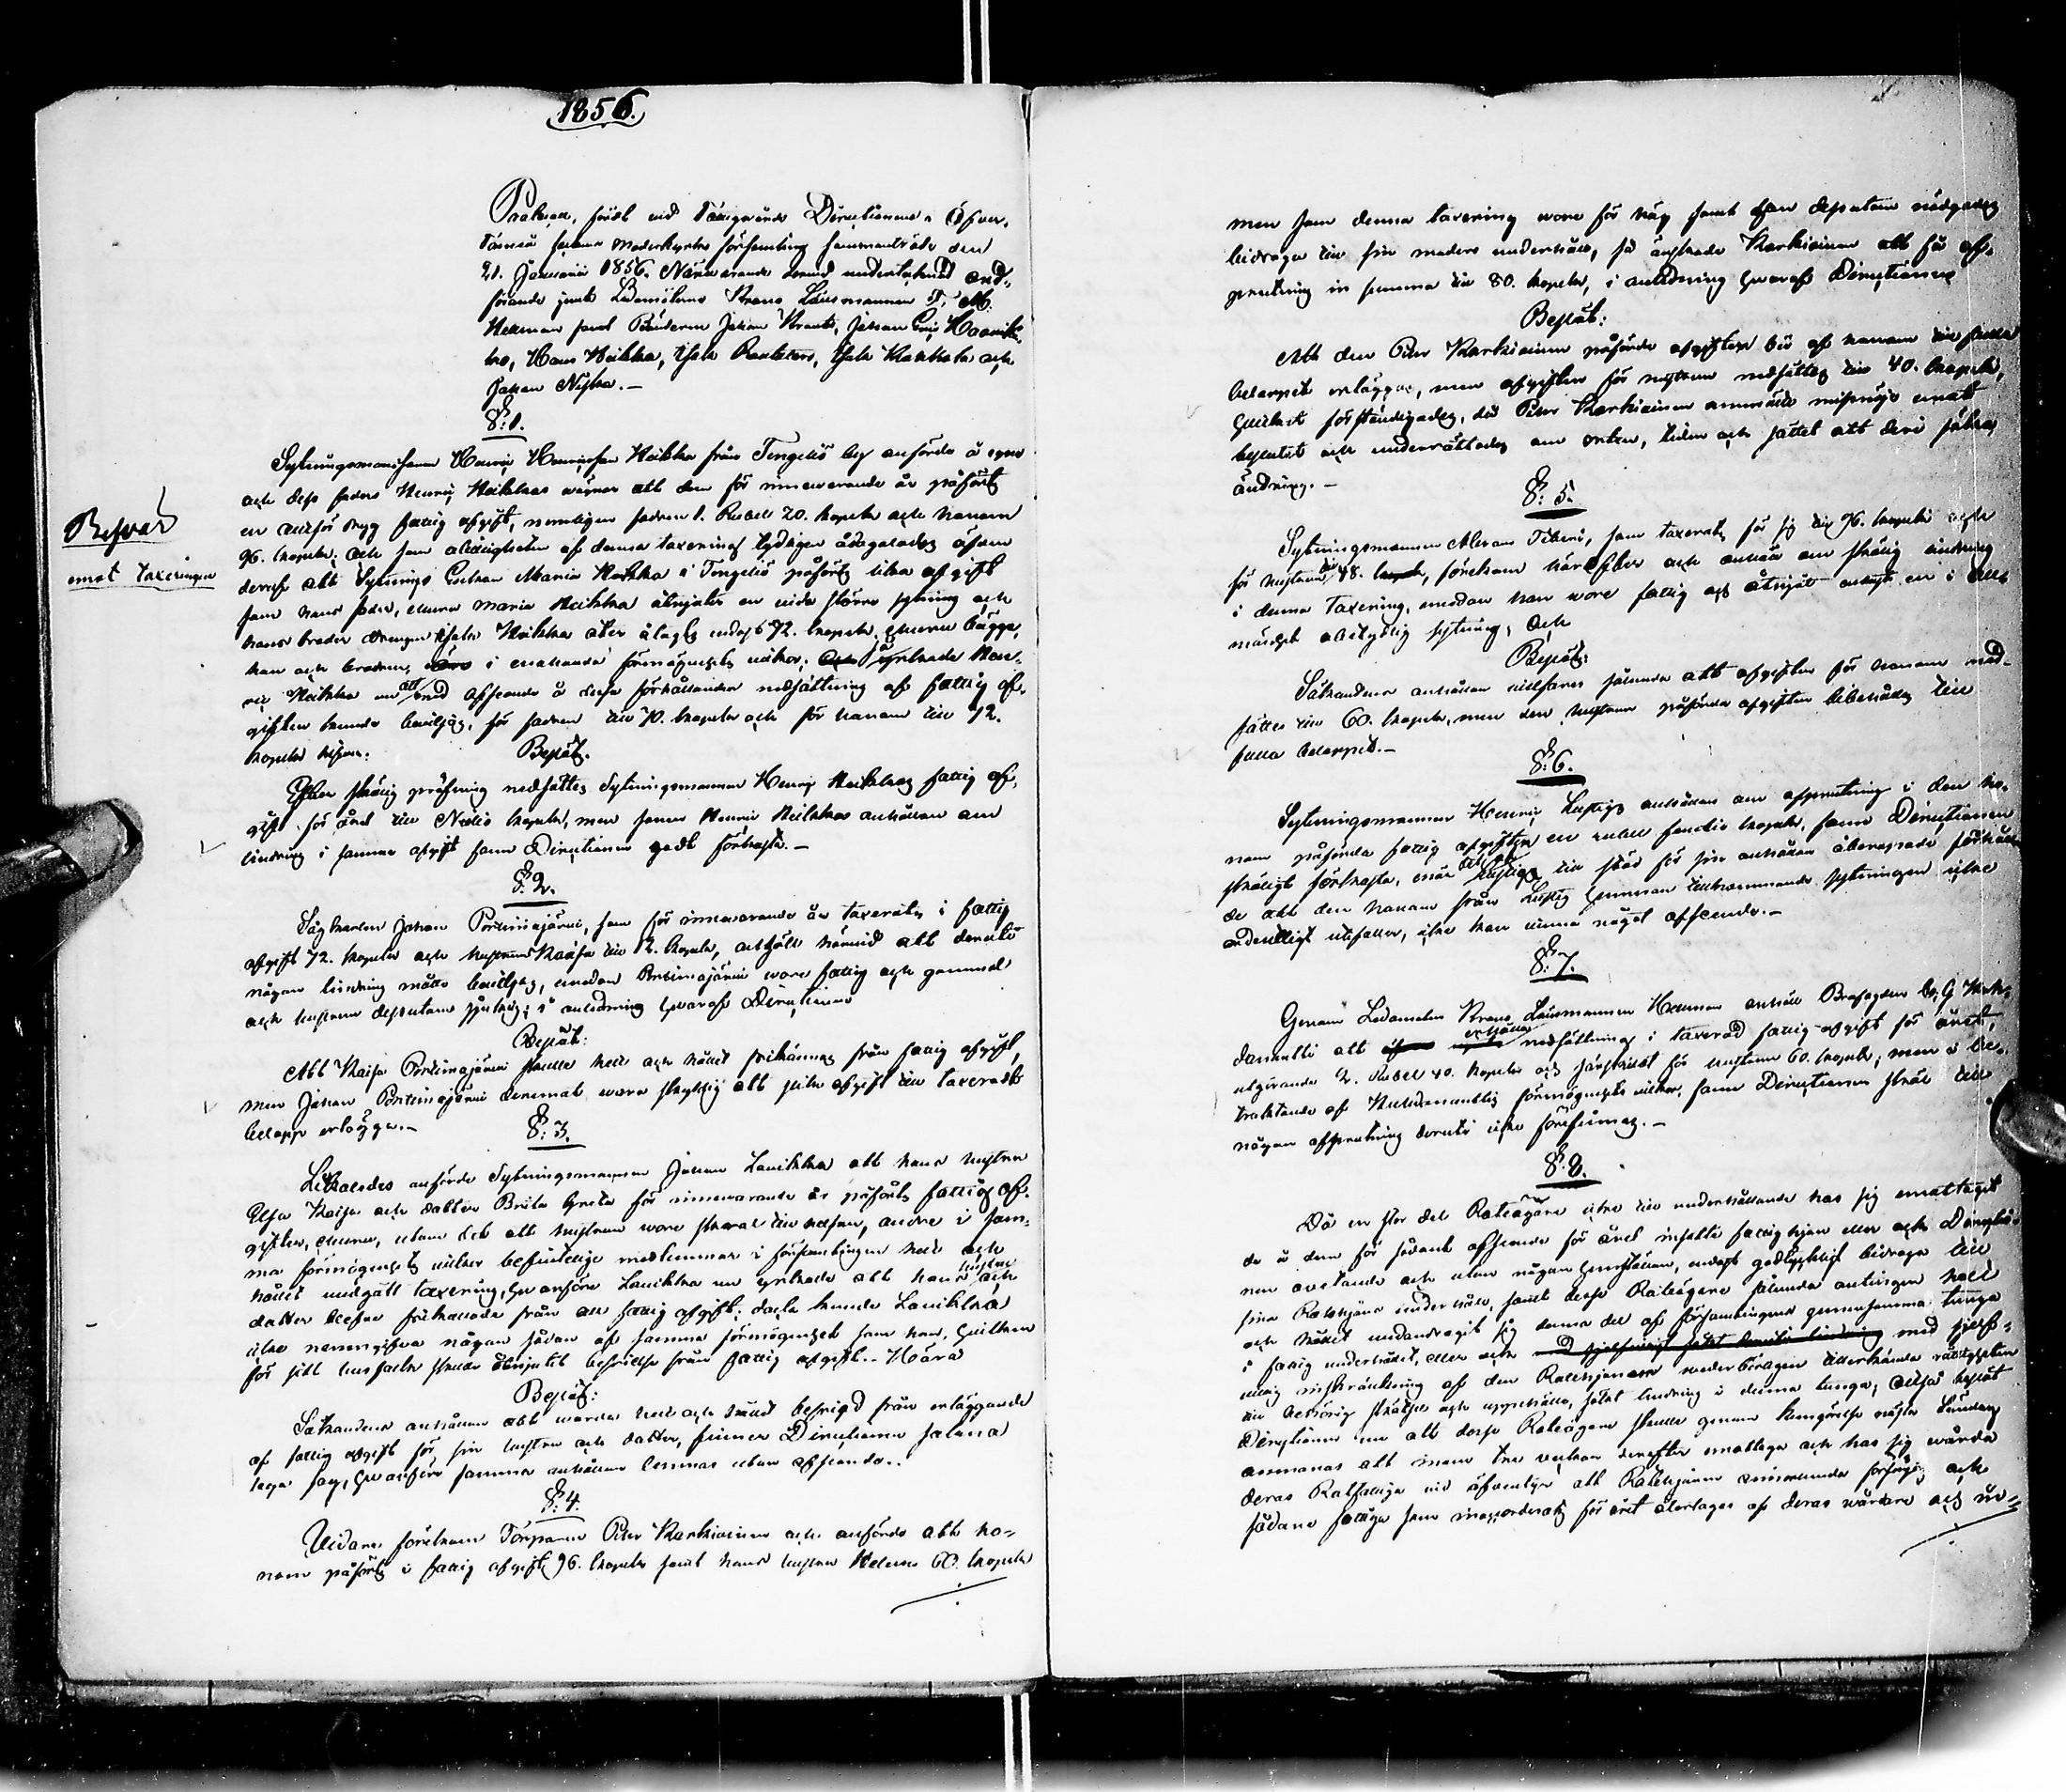 1856.
Protocoll, fördt vid Fattigvårds Directionens i Öfver-
Torneå socknes moderkyrko församling sammanträde den
21. Januarii 1856. Närvarande dervid undertecknad ord-
förande jemte Ledamöterne Krono Länsmannen F. M.
Hellman samt Bönderne Johan Krantz, Johan Eric
Hans Heikka, Isak Isak och
Johan Niska.-
§: 1.
Sytningsmannen Henric Henricsson Heikka från Tengeliö by anförde å egne
och dess faders Henric Heikkas vägnar att dem för innevarande år påförts
en alltför dryg fattig afgift, nemligen fadren 1. Rubel 20. kopek och honom
96. kopek; och som obilligheten af denna taxering tydligen ådagalades äfven
deraf att Sytnings Enkan Maria Heikka i Tengeliö påförts lika afgift
som hans fader, ehuru Maria Heikka åtnjuter en vida större sytning och
hans broder Isak Heikka åter ålagts endast 72. kopek, ehuru bägge,
han och brodren, äro i enahanda förmögenhets vilkor; så yrkade Hen-
ric Heikka att med afseende å dessa förhållanden nedsättning af fattig af-
giften kunde beviljas, för fadren till 70. kopek och för honom till 72.
kopek
Beslöts:
Efter skälig pröfning nedsattes Sytningsmannen Henric Heikkas fattig af-
gift för året till Nitio kopek, men sonen Henric Heikkas anhållan om
lindring i samma afgift fann Directionen godt förkasta.-
Besvär
emot taxeringen
§: 2.
Sågkarlen Johan Portimojärvi, som för innevarande år taxerats i fattig
afgift 72. kopek och hustrun Kaisa till 12. kopek, anhöll härvid att deruti
någon lindring måtte beviljas, emedan Portimojärvi vore fattig och gammal
och hustrun dessutom sjuklig; i anledning hvaraf Directionen
Beslöt:
Att Kaisa Portimojärvi skulle helt och hållet frikännas från fattig afgift,
men Johan Portimojärvi deremot vara skyldig att sitt afgift till taxeradt
belopp erlägga.-
§: 3.
Likaledes anförde Sytningsmannen Johan Lauikkka att hans hustru
Elsa Kaisa och dotter Brita Greta för innevarande år påförts fattig af-
gifter, ehuru, utom det att hustrun vore till helsan, andre i sam-
ma förmögenhets vilkor befintlige medlemmar i församlingen helt och
hållet undgått taxering, hvarföre Lauikka nu yrkade att hans hustru och
dotter blefve frikallade från all fattig afgift; dock kunde Lauikka
icke namngifva någon sådan af samma förmögenhet som han, hvilken
för sitt husfolk skulle åtnjutit befrielse från fattig afgift.- Hära
Beslöts:
Sökandens anhållan att warda helt och hållet befriad från erläggande
af fattig afgift för sin hustru och dotter, finner Directionen sakna
laga skäl, hvarföre samma anhållan lemnas utan afseende..
§: 4.
Vidare förekom Torparen Petter Karkiainen och anförde att ho-
nom påförts i fattig afgift 96. kopek samt hans hustru Helena 60. kopek
men som denna taxering wore för hög samt han dessutom nödgades
bidraga till sin moders underhåll, så önskade Karkiainen att få af-
prutning in summa till 80. kopek, i anledning hvaraf Directionen
Beslöt:
Att den Petter Karkiainen påförde afgiften bör af honom till fulla
beloppet erläggas, men afgiften för hustrun nedsättes till 40. kopek;
hvilket förständigades, då Petter Karkiainen anmälde missnöje emot
beslutet och underrättades om orten, tiden och sättet att deri söka
ändring.-
§: 5.
Sytningsmannen Tikeri, som taxerats för sig till 96. kopek och
för hustrun till 48. kopek, förekom härefter och anhöll om skälig lindring
i denna taxering, emedan han wore fattig och åtnjöt endast en i allt
måtto obetydlig sytning, och
Beslöts:
Sökandens anhållan villfares sålunda att afgiften för honom ned-
sättes till 60. kopek, men den hustrun påförda afgiften bibehålles till
fulla beloppet.-
§: 6.
Sytningsmannen Henric Lustigs anhållan om afprutning i den ho-
nom påförda fattig afgiften en rubel femtio kopek, fann Directionen
skäligt förkasta, enär Lustigs till stöd för sin anhållan åberopade förhållan-
de att den honom från Lustig hemman tillkommande sytningen icke
ordentligt utfaller, icke kan vinna något afseende.-
§: 7.
Genom Ledamoten Krono Länsmannen Hellman anhöll Brofogden
att erhålla nedsättning i taxerad fattig afgift för året,
utgörande 2. Rubel 40. kopek och särskildt för hustrun 60. kopek; men i be-
traktande af förmögenhets vilkor, fann Directionen skäl till
någon afprutning deruti icke förefinnas.-
§: 8.
Då en stor del Roteägare icke till underhållande hos sig emottagit
de å dem för sådant afseende för året införde fattighjon eller och Directio-
nen ovetande och utan någon hemställan, endast godtyckligt bidraga till
sina Rotehjons underhåll, samt desse Roteägare sålunda antingen helt
och hållet undandragit sig denna del af församlingens gemensamma tunga
i fattig underhållet, eller och med sjelf-
villig inskränkning af den Rotehjonen vederbörligen tillerkända rättigheten
till behörig skötsel och uppehälle, sökt lindring i denna tunga; alltså beslöt
Directionen nu att desse Roteägare skulle genom kungörelse nästa Söndag
anmanas att inom tre veckor derefter emottaga och hos sig vårda
deras Rotfattiga vid äfventyr att Rotehjonen annorlunda försörjas och
sådane fattige som inaccorderats för året återtagas af deras vårdare och in-